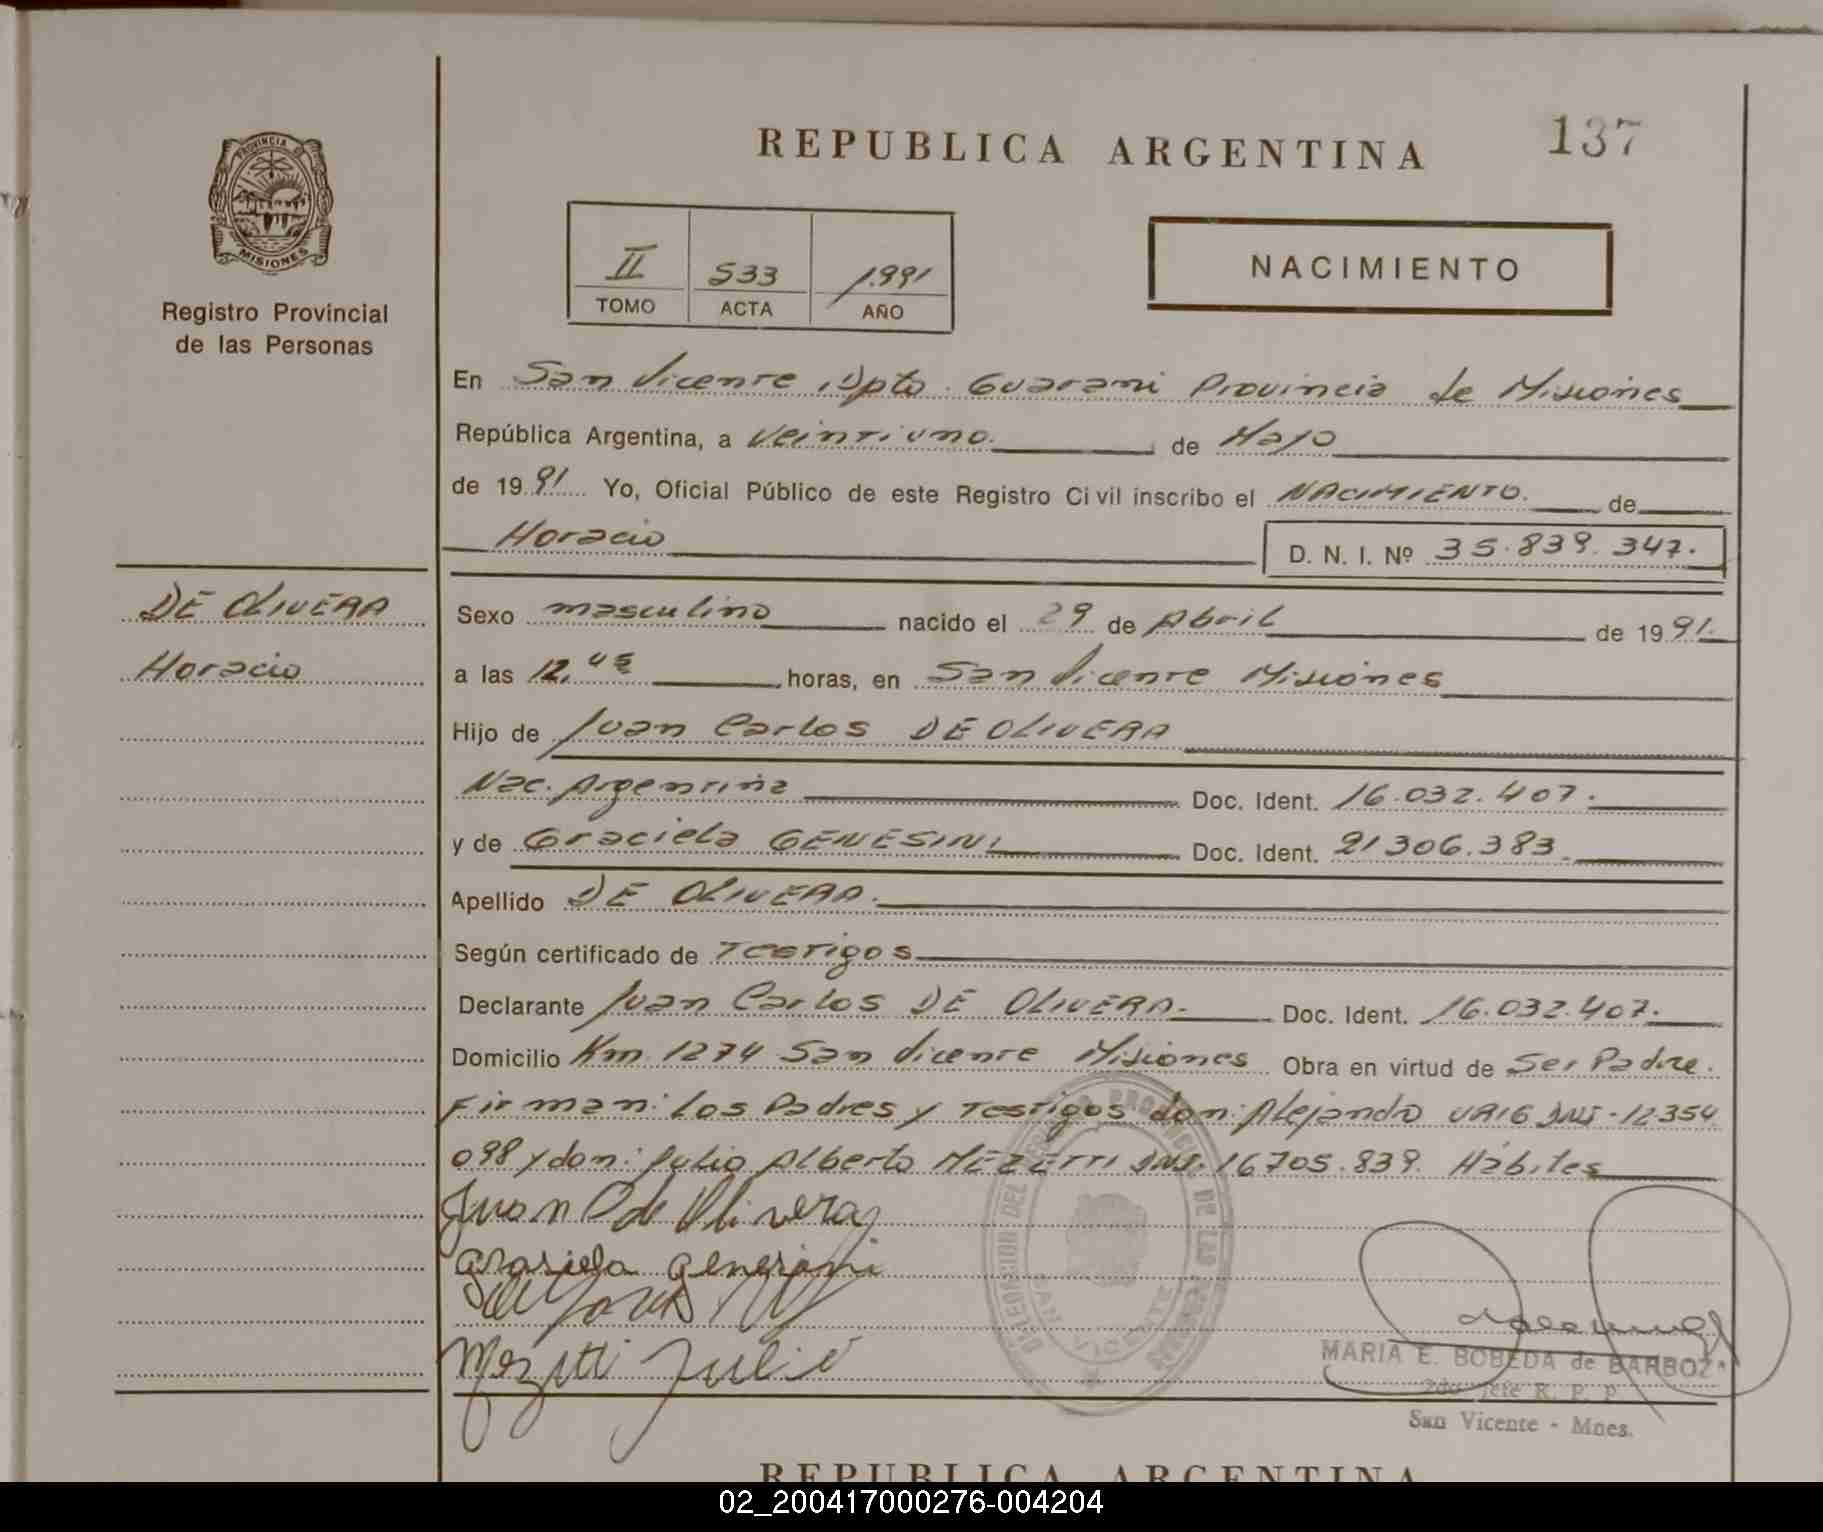 137
REPUBLICA ARGENTINA
PROVINCIA DE
MISIONES
Registro Provincial
de las Personas
II 533 1.991
TOMO ACTA AÑO
NACIMIENTO
En San Vicente Dpto. Guarani Provincia de Misiones
República Argentina, a Veintiuno. de Mayo
de 1991 Yo, Oficial Público de este Registro Civil inscribo el NACIMIENTO. de
Horacio D. N. I. Nº 35.839.347.
DE OLIVERA
Horacio
Sexo masculino nacido el 29 de Abril de 1991.
a las 12,45 horas, en San Vicente Misiones
Hijo de Juan Carlos DE OLIVERA
Nac. Argentina Doc. Ident. 16.032.407.
y de Graciela GENESINI Doc. Ident. 21306.383.
Apellido DE OLIVERA.
Según certificado de Testigos
Declarante Juan Carlos DE OLIVERA. Doc. Ident. 16.032.407.
Domicilio Km. 1274 San Vicente Misiones Obra en virtud de Ser Padre.
Firman: Los Padres y Testigos don: Alejandro DNI-12.354.
098 y don: Julio Alberto MEZETTI DNI. 16705.839. Hábiles
Juan C de Olivera
Grasiela genesini
Mezetti Julio
DELEGACION DEL REGISTRO PROVINCIAL DE LAS PERSONAS
SAN VICENTE
MARIA E. BOBEDA de BARBOZA
2do Jefe R. P. P.
San Vicente - Mnes.
REPUBLICA ARGENTINA
02_200417000276-004204